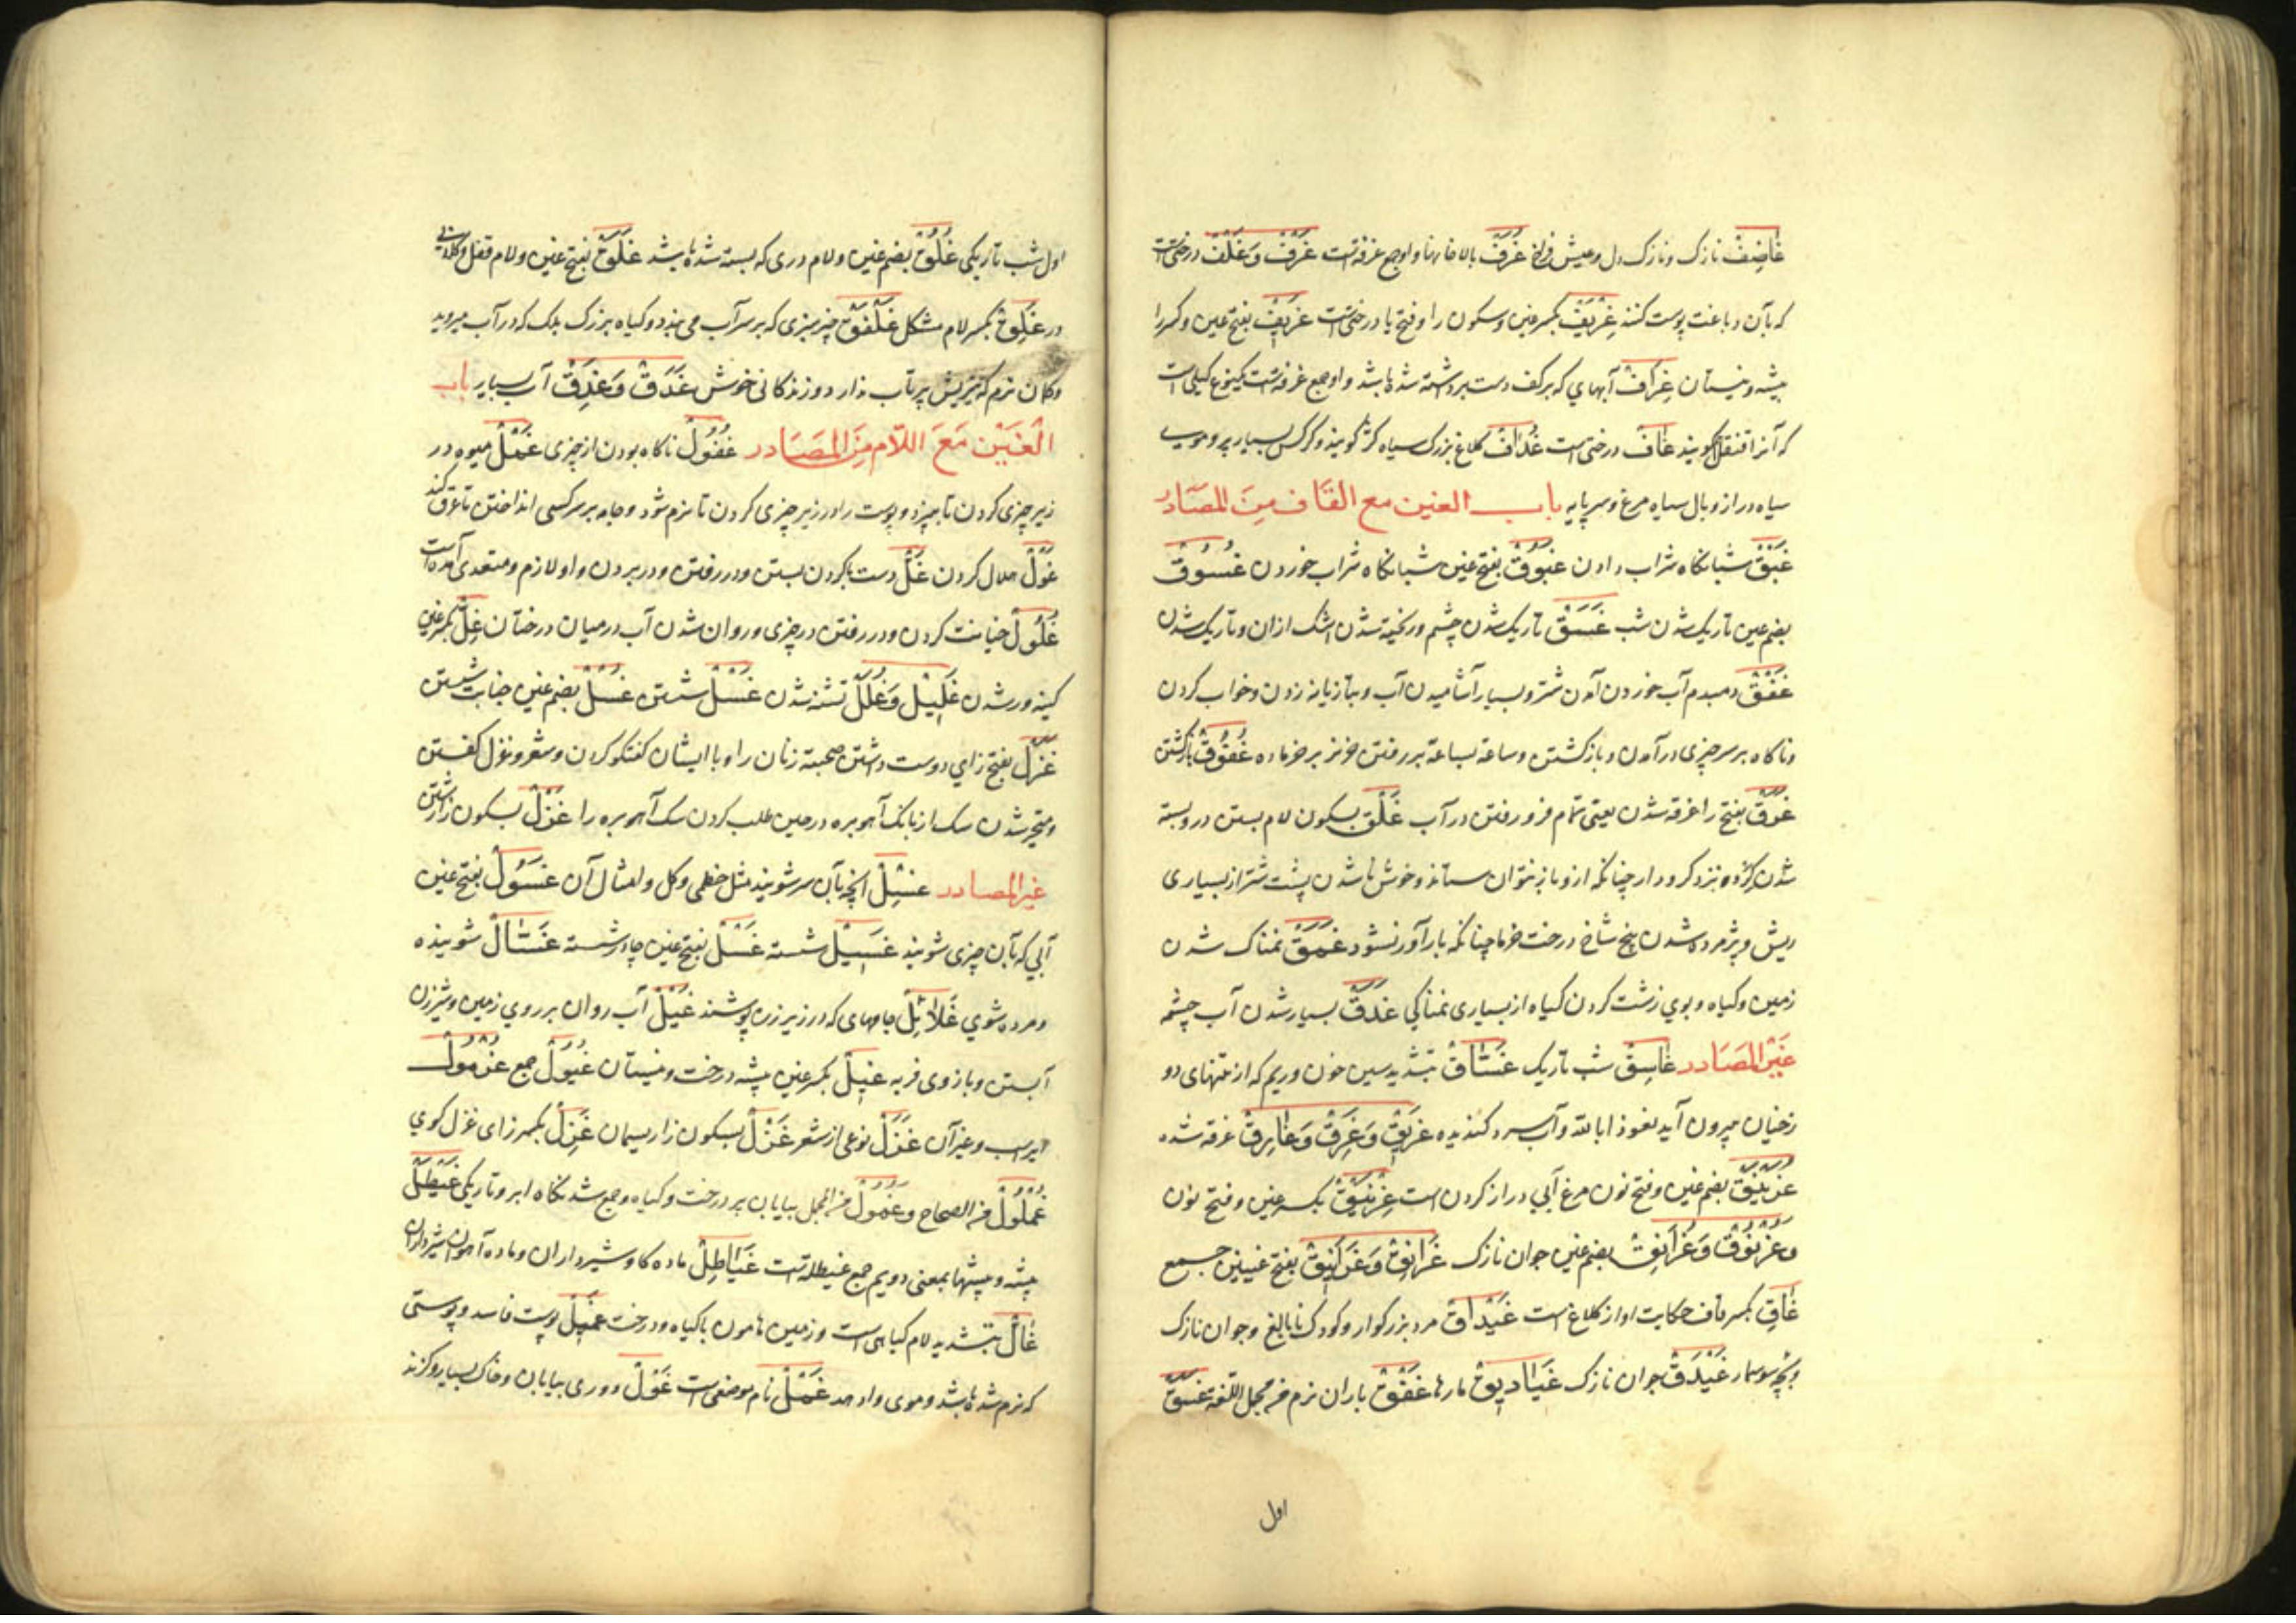 غاضِف نازک و نازک دل و عیش فراخ غُرَف بالاخانها و او جمع غرفه است غَرْف وَ غَلْف درختی است
که بآن دباغت پوست کنند غِرْیَف بکسر غین و سکون را و فتح یا درختی است غَرِیف بفتح غین و کسر را
بیشه و نیستان غِرَاف آبهای که بر کف دست برداشته شده باشد و او جمع غرفه است یک نوع کیلی است
که آنرا قنقل گویند غاف درختی است غُدَاف کلاغ بزرگ سیاه که گویند و کرکس بسیار پر و موی
سیاه دراز و بال سیاه مرغ و سرپایه باب الغین مع القاف مِنَ المصَادر
غَبْق شبانگاه شراب دادن غَبُوق بفتح غین شبانگاه شراب خوردن غُسُوق
بضم غین تاریک شدن شب غَسَق تاریک شدن چشم و ریخته شدن اشک از ان و تاریک شدن
غَفْق دمبدم آب خوردن آمدن شتر و بسیار آشامیدن آب و بتازیانه زدن و خواب کردن
و ناگاه بر سر چیزی درآمدن و بازگشتن و ساعة بساعة بر رفتن خر نر بر خر ماده غُفُوق بازگشتن
غَرَق بفتح را غرقه شدن یعنی تمام فرو رفتن در آب غَلْق بسکون لام بستن در و بسته
شدن در و بنزد کرو دار چنانکه ازو باز نتوان ستاند و خوش ناشدن پشت شتر از بسیاری
ریش و پژمرده شدن بیخ شاخ درخت خرما چنانکه بارآور نشود غَمَق نمناک شدن
زمین و گیاه و بوی زشت کردن گیاه از بسیاری نمناکی غَدَق بسیار شدن آب چشمه
غَیْر المصَادر غَاسِق شب تاریک غَسَّاق بتشدید سین خون و ریم که از تنهای دو
زخیان بیرون آید نعوذا بالله و آب سرد کندیده غَرِیق وَ غَرِق وَ غَارِق غرقه شده
غُرْنَیْق بضم غین و فتح نون مرغ آبی دراز کردن است غِرْنَیْق بکسر غین و فتح نون
وَ غُرْنُوق وَ غُرَانِق بضم غین جوان نازک غَرَانِق وَ غَرَانِیق بفتح غینین جمع
غَاقِ بکسر قاف حکایت اواز کلاغ است غَیْدَاق مرد بزرگوار و کودک نابالغ و جوان نازک
و بچه سوسمار غَیْدَق جوان نازک غَیَادِیق مارها غَفْق باران نرم فے مجمل اللغة غَسَق
اول
اول شب تاریکی غُلُق بضم غین و لام دری که بسته شده باشد غَلَق بفتح غین و لام قفل و کلیدانی
در غَلِق بکسر لام مشکل غَلْفَق چیز سبزی که بر سر آب می بندد و گیاه بزرگ بلک که در آب میروید
و کمان نرم که تیریش پرتاب ندارد و زندگانی خوش غَدَق وَ غَدِق آب بسیار باب
الْغَیْن مَعَ اللّام مِنَ المصَادر غُفُول ناگاه بودن از چیزی غَمْل میوه در
زیر چیزی کردن تا بپزد و پوست را در زیر چیزی کردن تا نرم شود و جامه بر سر کسی انداختن تا عرق کند
غَوْل هلال کردن غَلّ دست بگردن بستن و در رفتن و در بردن و او لازم و متعدی آمده است
غُلُول خیانت کردن و در رفتن در چیزی و روان شدن آب در میان درختان غِلّ بکسر غین
کینه ور شدن غَلِیل وَ غُلَل تشنه شدن غَسْل شستن غُسْل بضم غین جنابت شستن
غَزَل بفتح زای دوست داشتن صحبته زنان را و با ایشان گفتگو کردن و شعر و غزل گفتن
و متحیر شدن سک از بانک آهوبره در حین طلب کردن سک آهوبره را غَزْل بسکون زا رشتن
غیر المصادر غِسْل انچه بآن سر شویند مثل خطمی و کل و امثال آن غَسُول بفتح غین
آبی که بآن چیزی شویند غَسِیل شسته غَسْل بفتح غین جادر شسته غَسَّال شوینده
و مرده شوی غَلائِل جامهای که در زیر زره پوشند غَیْل آب روان بر روی زمین و شیر زن
آبستن و بازوی فربه غِیل بکسر غین بیشه درخت و نیستان غُیُول جمع غُرْمُول
ایر اسب و غیر آن غَزَل نوعی از شعر غَزْل بسکون زا ریسمان غَزِل بکسر زای غزل کوی
غُمْلُول فے الصحاح و غُمُول فے المجمل بیابان پر درخت و گیاه و جمع شد نکاه ابر و تاریکی غَیْطَل
بیشه و بیشها بمعنی دویم جمع غیطله است غَیَاطِل ماده کاو شیرداران و ماده آهوان شیرداران
غَالّ بتشدید لام گیاهی است و زمین هامون با گیاه و درخت غَمِیل پوست فاسد و پوستی
که نرم شده باشد و موی واد هد غَمْل نام موضعی است غَوْل دوری بیابان و خاک بسیار و کزند